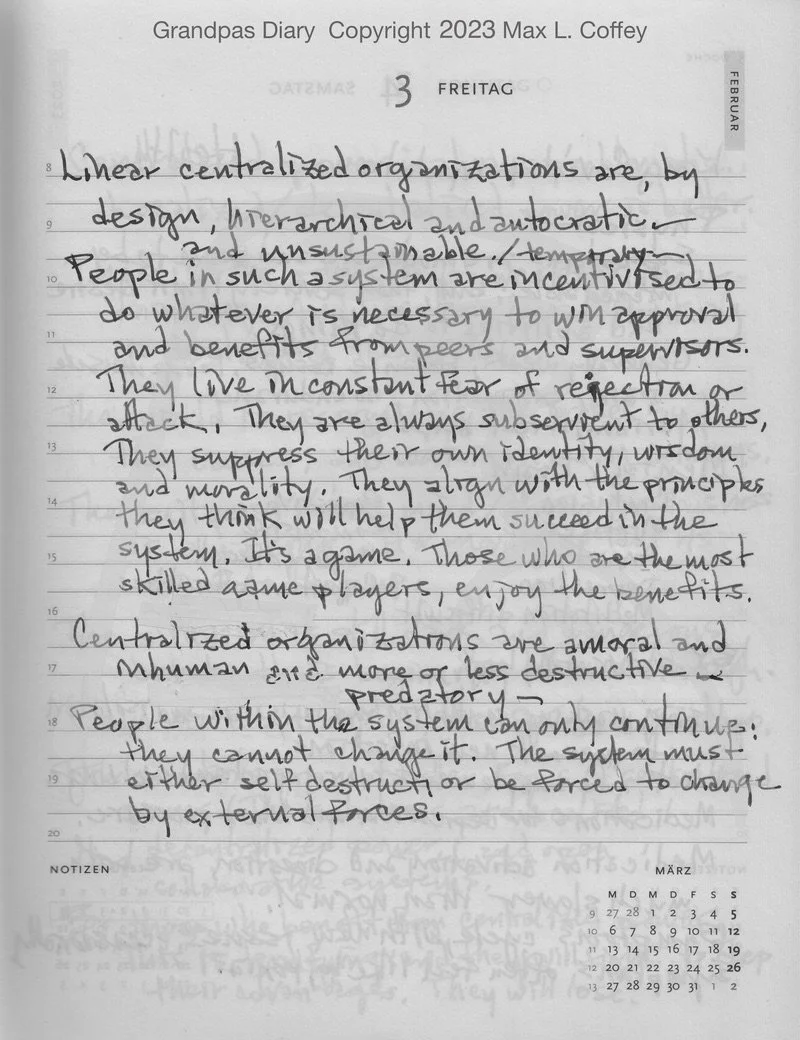 Grandpas Diary Copyright 2023 Max L. Coffey
3 FREITAG
FEBRUAR
8 Linear centralized organizations are, by
9 design, hierarchical and autocratic
and unsustainable. / temporary
10 People in such a system are incentivised to
do whatever is necessary to win approval
11 and benefits from peers and supervisors.
12 They live in constant fear of rejection or
attack. They are always subservient to others,
13 They suppress their own identity, wisdom
and morality. They align with the principles
14 they think will help them succeed in the
15 system. It's a game. Those who are the most
skilled game players, enjoy the benefits.
16
Centralized organizations are amoral and
17 inhuman and more or less destructive
predatory
18 People within the system can only continue;
they cannot change it. The system must
19 either self destruct or be forced to change
by external forces.
20
NOTIZEN
MÄRZ
M D M D F S S
9 27 28 1 2 3 4 5
10 6 7 8 9 10 11 12
11 13 14 15 16 17 18 19
12 20 21 22 23 24 25 26
13 27 28 29 30 31 1 2